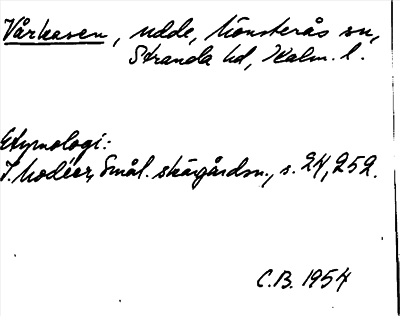 Vårkasen, udde, Mönsterås sn,
Stranda hd, Kalm. l.
Etymologi:
I. Modéer, Smål. skärgårdsn., s. 24, 252.
C.B. 1954